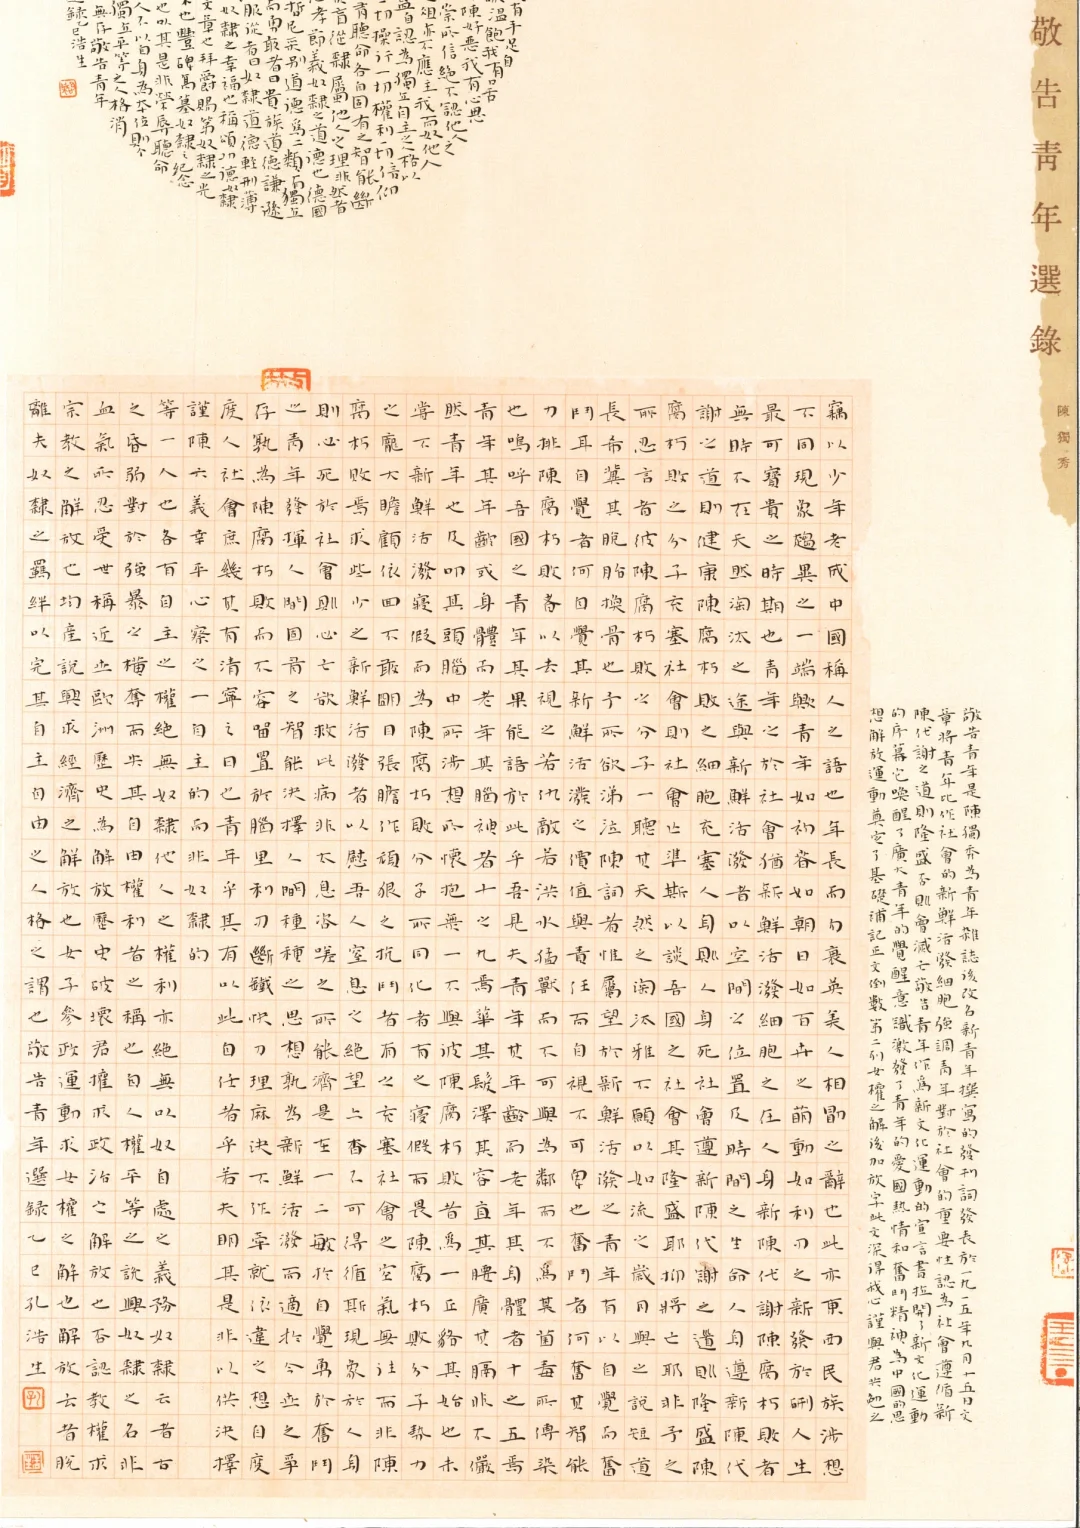 敬告青年選錄
陳獨秀
有手足自
溫飽我有口舌
陳好惡我有心思
崇所信絕不認他人之
俎亦不應主我而奴他人
蓋自認為獨立自主之人格以
一切操行一切權利一切信仰
有聽命各自固有之智能斷
盲從隸屬他人之理非然者
孝節義奴隸之道德也德國
哲尼采別道德為二類有獨立
而勇敢者曰貴族道德謙遜
服從者曰奴隸道德輕刑薄
奴隸之幸福也稱頌功德奴隸
文章也拜爵賜第奴隸之光
榮也豐碑高墓奴隸之紀念
也以其是非榮辱聽命
人不以自身為本位則个
獨立平等之人格消
無存敬告青年
選錄乙巳浩生
竊以少年老成中國稱人之語也年長而勿衰英美人相勖之辭也此亦東西民族涉想
不同現象趨異之一端歟青年如初春如朝日如百卉之萌動如利刃之新發於硎人生
最可寶貴之時期也青年之於社會猶新鮮活潑細胞之在人身新陳代謝陳腐朽敗者
無時不在天然淘汰之途與新鮮活潑者以空間之位置及時間之生命人身遵新陳代
謝之道則健康陳腐朽敗之細胞充塞人身則人身死社會遵新陳代謝之道則隆盛陳
腐朽敗之分子充塞社會則社會亡準斯以談吾國之社會其隆盛耶抑將亡耶非予之
所忍言者彼陳腐朽敗之分子一聽其天然之淘汰雅不願以如流之歲月與之說短道
長希冀其脫胎換骨也予所欲涕泣陳詞者惟屬望於新鮮活潑之青年有以自覺而奮
鬥耳自覺者何自覺其新鮮活潑之價值與責任而自視不可卑也奮鬥者何奮其智能
力排陳腐朽敗者以去視之若仇敵若洪水猛獸而不可與為鄰而不為其菌毒所傳染
也嗚呼吾國之青年其果能語於此乎吾見夫青年其年齡而老年其身體者十之五焉
青年其年齡或身體而老年其腦神者十之九焉華其髮澤其容直其腰廣其膈非不儼
然青年也及叩其頭腦中所涉想所懷抱無一不與彼陳腐朽敗者為一丘貉其始也未
嘗不新鮮活潑寢假而為陳腐朽敗分子所同化者有之寢假而畏陳腐朽敗分子勢力
之龐大瞻顧依回不敢明目張膽作頑狠之抗鬥者有之充塞社會之空氣無往而非陳
腐朽敗焉求些少之新鮮活潑者以慰吾人窒息之絕望亦杳不可得循斯現象於人身
則必死於社會則必亡欲救此病非太息咨嗟之所能濟是在一二敏於自覺勇於奮鬥
之青年發揮人間固有之智能決擇人間種種之思想孰為新鮮活潑而適於今世之爭
存孰為陳腐朽敗而不容留置於腦里利刃斷鐵快刀理麻決不作牽就依違之想自度
度人社會庶幾其有清寧之日也青年乎其有以此自任者乎若夫明其是非以供決擇
謹陳六義幸平心察之一自主的而非奴隸的
等一人也各有自主之權絕無奴隸他人之權利亦絕無以奴自處之義務奴隸云者古
之昏弱對於強暴之橫奪而失其自由權利者之稱也自人權平等之說興奴隸之名非
血氣所忍受世稱近世歐洲歷史為解放歷史破壞君權求政治之解放也否認教權求
宗教之解放也均產說興求經濟之解放也女子參政運動求女權之解也解放云者脫
離夫奴隸之羈絆以完其自主自由之人格之謂也敬告青年選錄乙巳孔浩生
敬告青年是陳獨秀為青年雜誌後改名新青年撰寫的發刊詞發表於一九一五年九月十五日文
章將青年比作社會的新鮮活發細胞強調青年對於社會的重要性認為社會遵循新
陳代謝之道則隆盛否則會滅亡敬告青年作為新文化運動的宣言書拉開了新文化運動
的序幕它喚醒了廣大青年的覺醒意識激發了青年的愛國熱情和奮鬥精神為中國的思
想解放運動奠定了基礎浦記正文倒數第二列女權之解後加放字此文深得我心謹與君共勉之